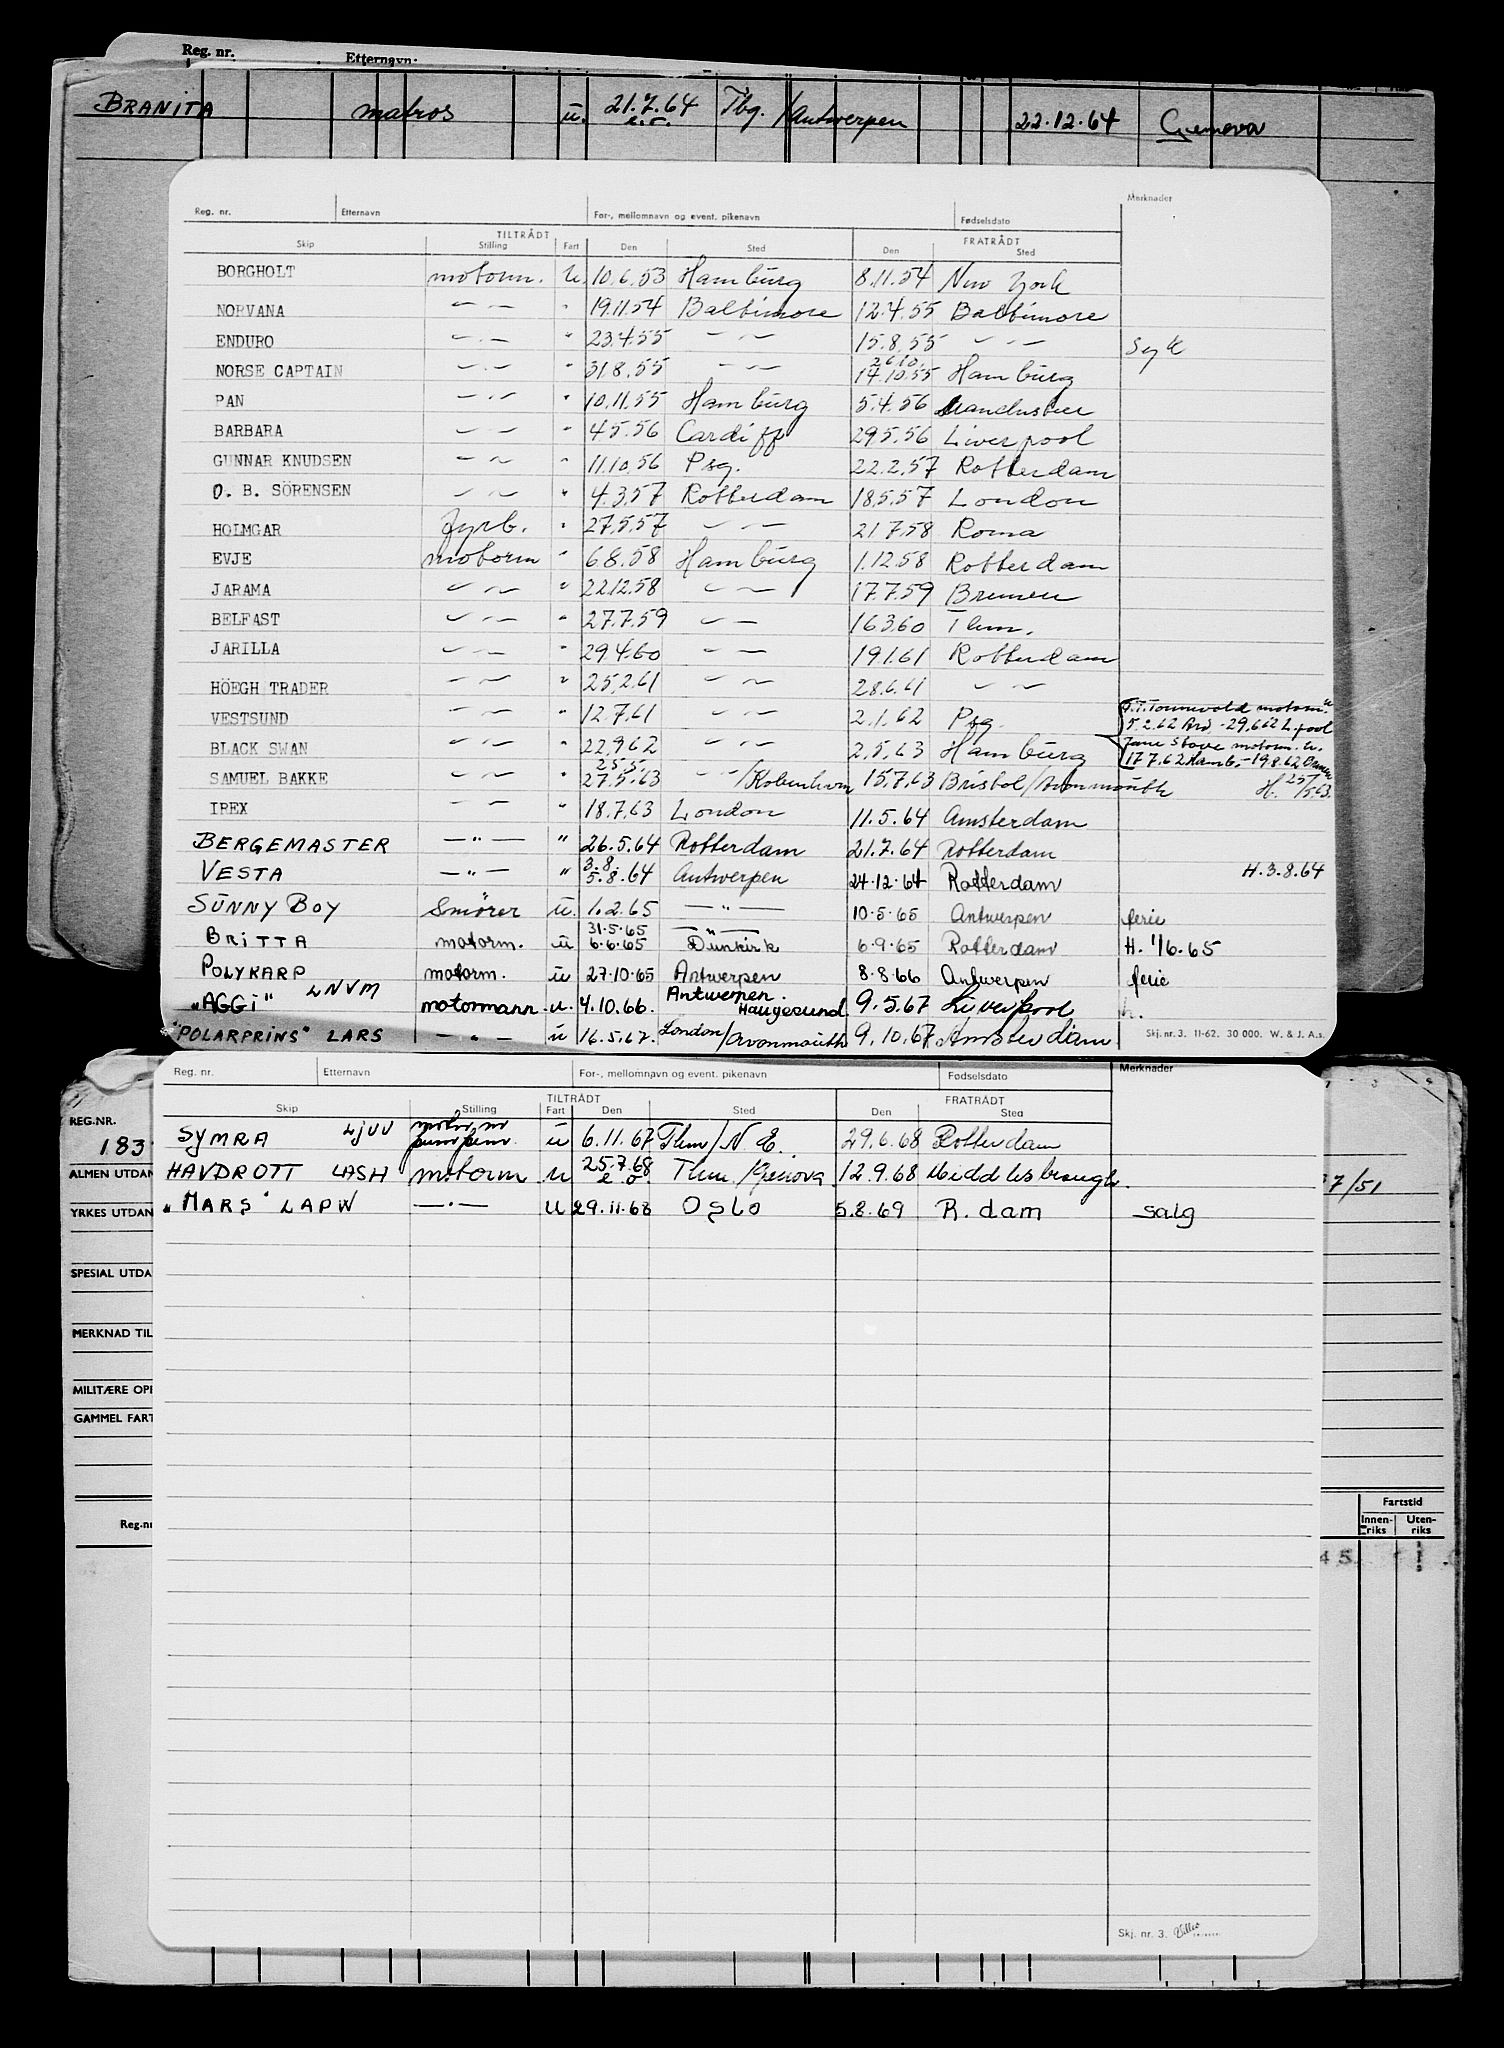 Reg. nr. Etternavn:
BRANITA matros u. 21.7.64 e.r. Tbg. / Antwerpen 22.12.64 Genova
Reg. nr. Etternavn For-, mellomnavn og event. pikenavn Fødselsdato Merknader
TILTRÅDT FRATRÅDT
Skip Stilling Fart Den Sted Den Sted
BORGHOLT motorm. u. 10.6.53 Hamburg 8.11.54 New York
NORVANA — " — " 19.11.54 Baltimore 12.4.55 Baltimore
ENDURO — " — " 23.4.55 — " — 15.8.55 — " — Syk
NORSE CAPTAIN — " — " 31.8.55 — " — 26.10. 14.10.55 Hamburg
PAN — " — " 10.11.55 Hamburg 5.4.56 Manchester
BARBARA — " — " 4.5.56 Cardiff 29.5.56 Liverpool
GUNNAR KNUDSEN — " — " 11.10.56 Psg. 22.2.57 Rotterdam
O. B. SÖRENSEN — " — " 4.3.57 Rotterdam 18.5.57 London
HOLMGAR Fyrb. " 27.5.57 — " — 21.7.58 Roma
EVJE motorm " 6.8.58 Hamburg 1.12.58 Rotterdam
JARAMA — " — " 22.12.58 — " — 17.7.59 Bremen
BELFAST — " — " 27.7.59 — " — 16.3.60 Thm.
JARILLA — " — " 29.4.60 — " — 19.1.61 Rotterdam
HÖEGH TRADER — " — " 25.2.61 — " — 28.6.61 — " —
VESTSUND — " — " 12.7.61 — " — 2.1.62 Psg. T.T. Tønnevold motorm. u
5.2.62 Ard - 29.6.62 L.pool
BLACK SWAN — " — " 22.9.62 — " — 2.5.63 Hamburg Jane Stove motorm. u.
17.7.62 Hamb. - 19.8.62
SAMUEL BAKKE — " — " 25.5. 27.5.63 — " — / København 15.7.63 Bristol / Avonmouth H. 25/5.63.
IREX — " — " 18.7.63 London 11.5.64 Amsterdam
BERGEMASTER — " — " 26.5.64 Rotterdam 21.7.64 Rotterdam
VESTA — " — " 3.8. 5.8.64 Antwerpen 24.12.64 Rotterdam H. 3.8.64
SUNNY BOY Smører u. 1.2.65 — " — 10.5.65 Antwerpen ferie
BRITTA motorm. u 31.5.65 6.6.65 — " — Dunkirk 6.9.65 Rotterdam H. 1/6.65
POLYKARP motorm. u 27.10.65 Antwerpen 8.8.66 Antwerpen ferie
"AGGI" LNVM motormann u. 4.10.66. Antwerpen. Haugesund. 9.5.67 Liverpool h.
"POLARPRINS" LARS — " — u 16.5.67. London / Avonmouth 9.10.67 Amsterdam
Skj. nr. 3. 11-62. 30 000. W. & J. A.s.
Reg. nr. Etternavn For-, mellomnavn og event. pikenavn Fødselsdato Merknader
TILTRÅDT FRATRÅDT
Skip Stilling Fart Den Sted Den Sted
SYMRA LJUU u 6.11.67 Thm / N.E. 29.6.68 Rotterdam
HAVDROTT LASH motorm u 25.7.68 e.o. Thm / Genova 12.9.68 Middlesbrough.
"MARS" LAPW — " — u 29.11.68 Oslo 5.8.69 R.dam salg
REG.NR.
183
ALMEN UTDAN
7/51
YRKES UTDAN
SPESIAL UTDA
MERKNAD TIL
MILITÆRE OPI
GAMMEL FART
Fartstid
Reg.nr
Innen-riks Uten-riks
45
Skj. nr. 3.